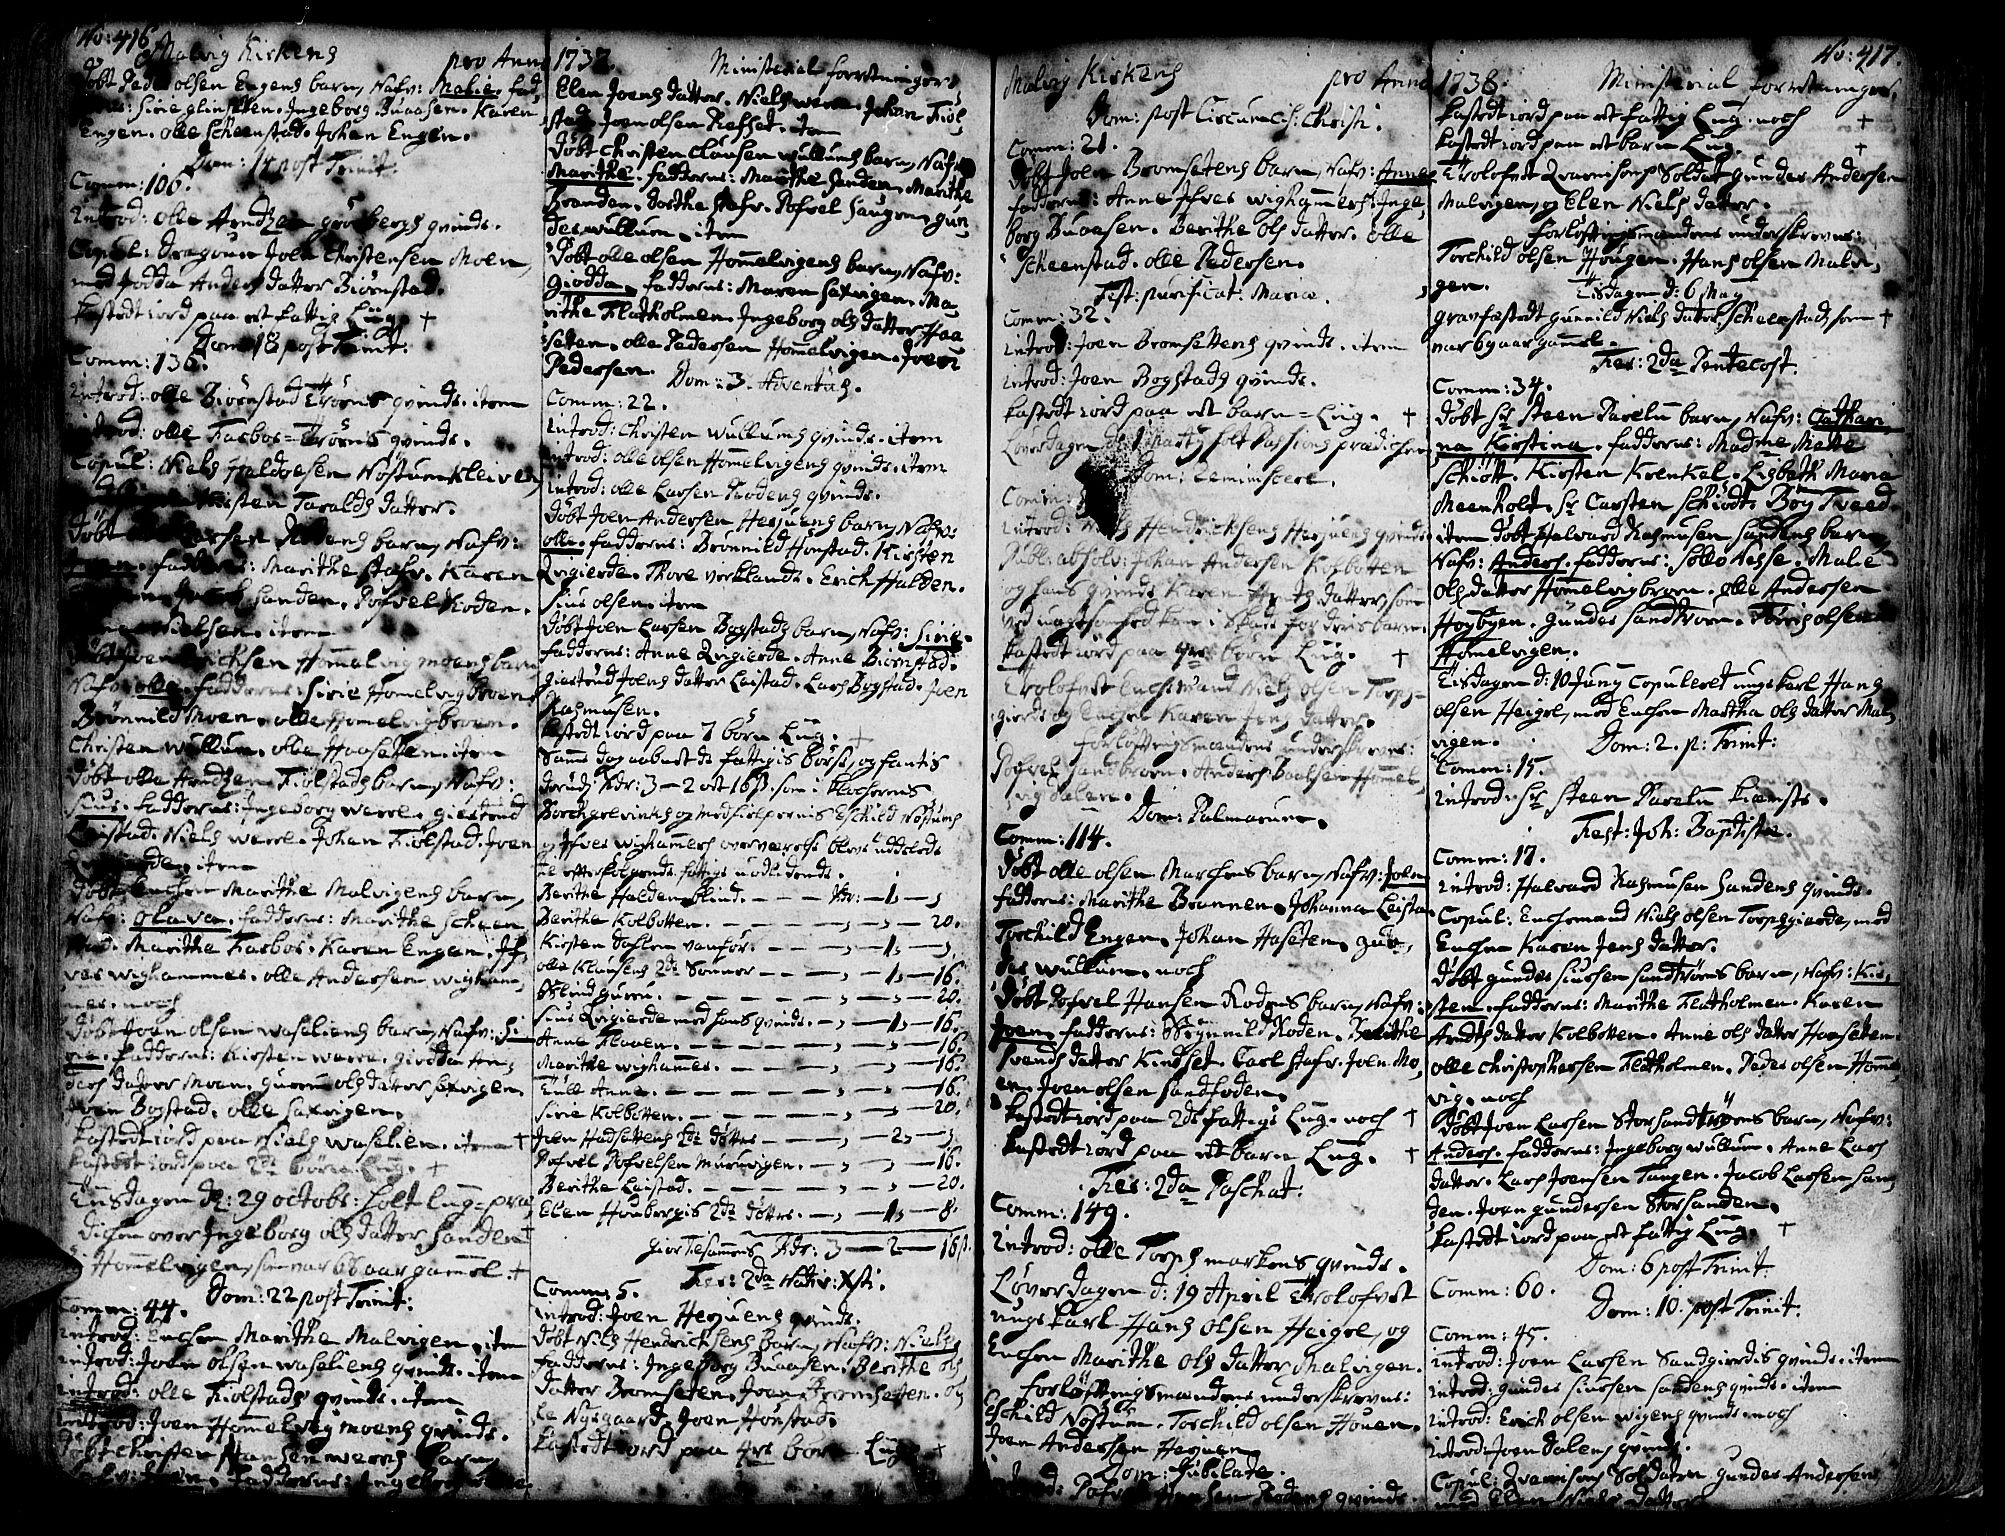 No: 416
Malvig Kirkens pro Anno
Døbt Peder olsen Engens barn, Nafv: Malie. fad,
Engen. olle Scheenstad. Johan Engen.
Dom: 14 post Trinit.
Comm: 106.
Introd: olle Arndtzen qvinde.
Copul: Dragoun Joen Christensen Moen,
med Anders datter Biörnstad.
kastedt iord paa et fattig Liig. +
Dom: 18 post Trinit:
Comm: 136.
Introd: olle Biörnstad Trøens qvinde. item
Introd: olle Farbos Trøens qvinde.
Copul: Niels Haldorsen Nøstumkleiven,
Kirsten Taralds datter.
Døbt Larsen Rodens barn, Nafv:
fadderne: Marithe Stafr. Karen
Sanden. Pofvel Roden.
Nielsen. item
Døbt Joen Ericksen Hommelvigmoens barn
Nafv: olle. fadderne: Sirie Hommelvigbroen,
Brönnild Moen. olle Hommelvigbroen.
Christen Wullum. olle Haasetten. item
Døbt olle Arndtzen Fiolstads barn, Nafv:
Siur. fadderne: Ingeborg Werre. Giertrud
Leistad. Niels Werre. Johan Fiolstad. Joen
item
Døbt Enchen Marithe Malvigens barn,
Nafv: Olava. fadderne: Marithe Scheen
stad. Marithe Farbos. Karen Engen. If,
ver Wighammer. olle Andersen Wigham,
mer. noch
Døbt Joen olsen Waseliens barn, Nafv: Si
rie. fadderne: Kirsten Werre. Giodda An,
ders datter Moen. Guren ols datter Saxvigen.
Joen Bogstad. olle Saxvigen.
kastedt iord paa Niels Waselien. item +
kastedt iord paa 2de børn Liig. +
Tiisdagen d: 29 octobr: holt Liig-præ
dichen over Ingeborg ols datter Sanden
i Hommelvigen, som var 68 aar gammel +
Dom: 22 post Trinit:
Comm: 44.
Introd: Enchen Marithe Malvigen. item
Introd: Joen olsen Waseliens qvinde. item
Introd: olle Fiolstads qvinde. item
Introd: Joen Hommelvigmoens qvinde.
Døbt Christen Hansen Werres barn,
fadderne: Ingeborg
1737. Ministerial forretninger,
Elen Joens datter. Niels Werre. Johan Fiol
stad. Joen olsen Refset. item
Døbt Christen Clausen Wullums barn, Nafv:
Marithe. fadderne: Marithe Sanden. Marithe
Branden. Dorthe Stafr. Pofvel Haugen. Gun
der Wullum. item
Døbt olle olsen Hommelvigens barn, Nafv:
Giodda. fadderne: Maren Saxvigen. Ma
rithe Flatholmen. Ingeborg ols datter Haa
setten. olle Pedersen Hommelvigen. Joen
Pedersen.
Dom: 3. Adventus.
Comm: 22.
Introd: Christen Wullums qvinde. item
Introd: olle olsen Hommelvigens qvinde. item
Introd: olle Larsen Rodens qvinde.
Døbt Joen Andersen Herjuens barn, Nafv:
olle. fadderne: Brönnild Honstad. Kirsten
Qvigierde. Thore Virklands. Erich Halden.
Siur olsen. item
Døbt Joen Larsen Bogstads barn, Nafv: Sirie.
fadderne: Anne Qvigierde. Anne Biörnstad.
Giertrud Joens datter Leistad. Lars Bogstad. Joen
Rasmusen.
kastedt iord paa 7 børn Liig. +
Samme dag aabnet de fattiges Børse, og fantis
derudj Rdr: 3 - 2 ort 16 s. som i Klocherens
Borchgrevincks og medhielpernis Eschild Nøstums
og Ifver Wighammers overværelse blev uddeelede
til efterfølgende fattige nødlidende.
Berithe Halden blind. Rdr: - 1 -
Berithe Kolbotten. 20.
Kirsten Dahlen vanför. 1
olle Klausens 2de Sønner 1, - 16.
Blind Guren. 20.
Siur Qvigierde med hans qvinde. 1, - 16.
Anne Flaaen. 16.
Marithe Wighammer. 16.
Tull Anne. 16.
Sirie Kolbotten. 20.
Joen Hadsettens 2de døttre 2,
Pofvel Pofvelsen Muruvigen. 16.
Berithe Leistad. 20.
Elen Houbergis 2de døttre. 1, - 8.
Giør tilsammens Rdr: 3 - 2 - 16 s.
Fer: 2da Nativ: Xsti.
Comm: 5.
Introd: Joen Herjuens qvinde.
Døbt Niels Hendricksens barn, Nafv: Niels
fadderne: Ingeborg Buaasen. Berithe ols
datter Bromseten. Joen Bromsetten. ol
le Nygaard. Joen Honstad.
kastedt iord paa 4re børn Liig. +
Malvig Kirkens pro Anno
Dom: post Circumcis: Christi.
Comm: 21.
Døbt Joen Bromsetens barn, Nafv: Anne
fadderne: Anne Ifvers Wighammer. Inge,
borg Buaasen. Berithe ols datter. olle
Scheenstad. olle Pedersen.
Fest: purificat: Mariæ.
Comm: 32.
Introd: Joen Bromsettens qvinde. item
Introd: Joen Bogstads qvinde.
kastedt iord paa et barn-Liig. +
Løverdagen d: 1 Marty holt Passions prædichen
Dom: Reminiscere.
Comm:
Introd: Niels Hendricksens Herjuens qvinde
Publ: absolv: Johan Andersen Kolbotten
og hans qvinde Karen Arnts datter, som
ved uagtsomhed kom i skade for deres barn.
kastedt iord paa 4re børn Liig. +
Trolofvet Enchemand Niels olsen Torp,
gierde og Enchen Karen Jens datter.
forløftningsmændene underskrevne:
Pofvel Sandbroen. Anders Baalsen Hommel,
vigdalen.
Dom: Palmarum.
Comm: 114.
Døbt olle olsen Marchens barn, Nafv: Joen
fadderne: Marithe Brannen. Johanna Leistad.
Torchild Engen. Johan Haseten. Gun,
der Wullum. noch
Døbt Pofvel Hansen Rodens barn, Nafv:
Joen. fadderne: Rönnild Roden. Berithe
Svends datter Kindset. Carl Stafr. Joen Mo,
en. Joen olsen Sandfoden.
kastedt iord paa 2de fattigs Liig. noch +
kastedt iord paa et barn Liig. +
Fer: 2da Paschat:
Comm: 149.
Introd: olle Torpmarkens qvinde.
Løverdagen d: 19 April Trolofvet
ungkarl Hans olsen Heigre, og
Enchen Marithe ols datter Malvigen.
forløftningsmændene underskrevne:
Eschild Nøstum. Torchild olsen Houen.
Joen Andersen Herjuen
Dom: Jubilate.
Introd: Pofvel Hansen Rodens qvinde.
No: 417.
1738. Ministerial forretninger,
kastedt iord paa et fattig Liig. noch +
kastedt iord paa et barn Liig. +
Trolofvet Qvarnisons Soldat Gunder Andersen
Malvigen, og Elen Niels datter.
forløftningsmændene underskrevne:
Torchild olsen Hougen. Hans olsen Malvi,
gen.
Tiisdagen d: 6 May
gravfæstedt Gunnild Niels datter Scheenstad, som +
var 69 aar gammel.
Fer: 2da Pentecost.
Comm: 34.
Døbt Sr Steen Parelii barn, Nafv: Cathari,
na Kirstina. fadderne: Madme Mette
Schiött. Kirsten Krenkel. Lisbeth Maria
Meenholt. Sr Carsten Schiödt. Boy Tveed.
item Døbt Halvard Rasmusen Sandens barn
Nafv: Anders. fadderne: Sølle Hesse. Male
ols datter Hommelvigbroen. olle Andersen
Høybyen. Gunder Sandtroen. Törris olsen
Hommelvigen.
Tiisdagen d: 10 Juny Copuleret ungkarl Hans
olsen Heigre, med Enchen Marithe ols datter Mal,
vigen.
Dom: 2. p: Trinit:
Comm: 15.
Introd: Sr Steen Parelii kiæreste.
Fest: Joh: Baptistæ.
Comm: 17.
Introd: Halvard Rasmusen Sandens qvinde.
Copul: Enchemand Niels olsen Torpgierde, med
Enchen Karen Jens datter.
Døbt Gunder Siursen Sandtrøens barn, Nafv: Kir,
sten. fadderne: Marithe Flatholmen. Karen
Arndts datter Kolbotten. Anne ols datter Haasetten.
olle Christophersen Flatholmen. Peder olsen Homme
vig. noch
Døbt Joen Larsen Storsandtrøens barn, Nafv:
Anders. fadderne: Ingeborg Wullum. Anne Lars
datter. Lars Joensen Tangen. Jacob Larsen San,
den. Joen Gundersen Storsanden.
kastedt iord paa et fattig Liig. +
Dom: 6 post Trinit:
Comm: 60.
Dom: 10. post Trinit:
Comm: 45.
Introd: Joen Larsen Sandgierdis qvinde. item
Introd: Gunder Siursen Sandens qvinde. item
Introd: Erich olsen Wigens qvinde. noch
Introd: Joen Dalens qvinde.
Copul: Qvarnisons Soldaten Gunder Andersen
med Elen Niels datter